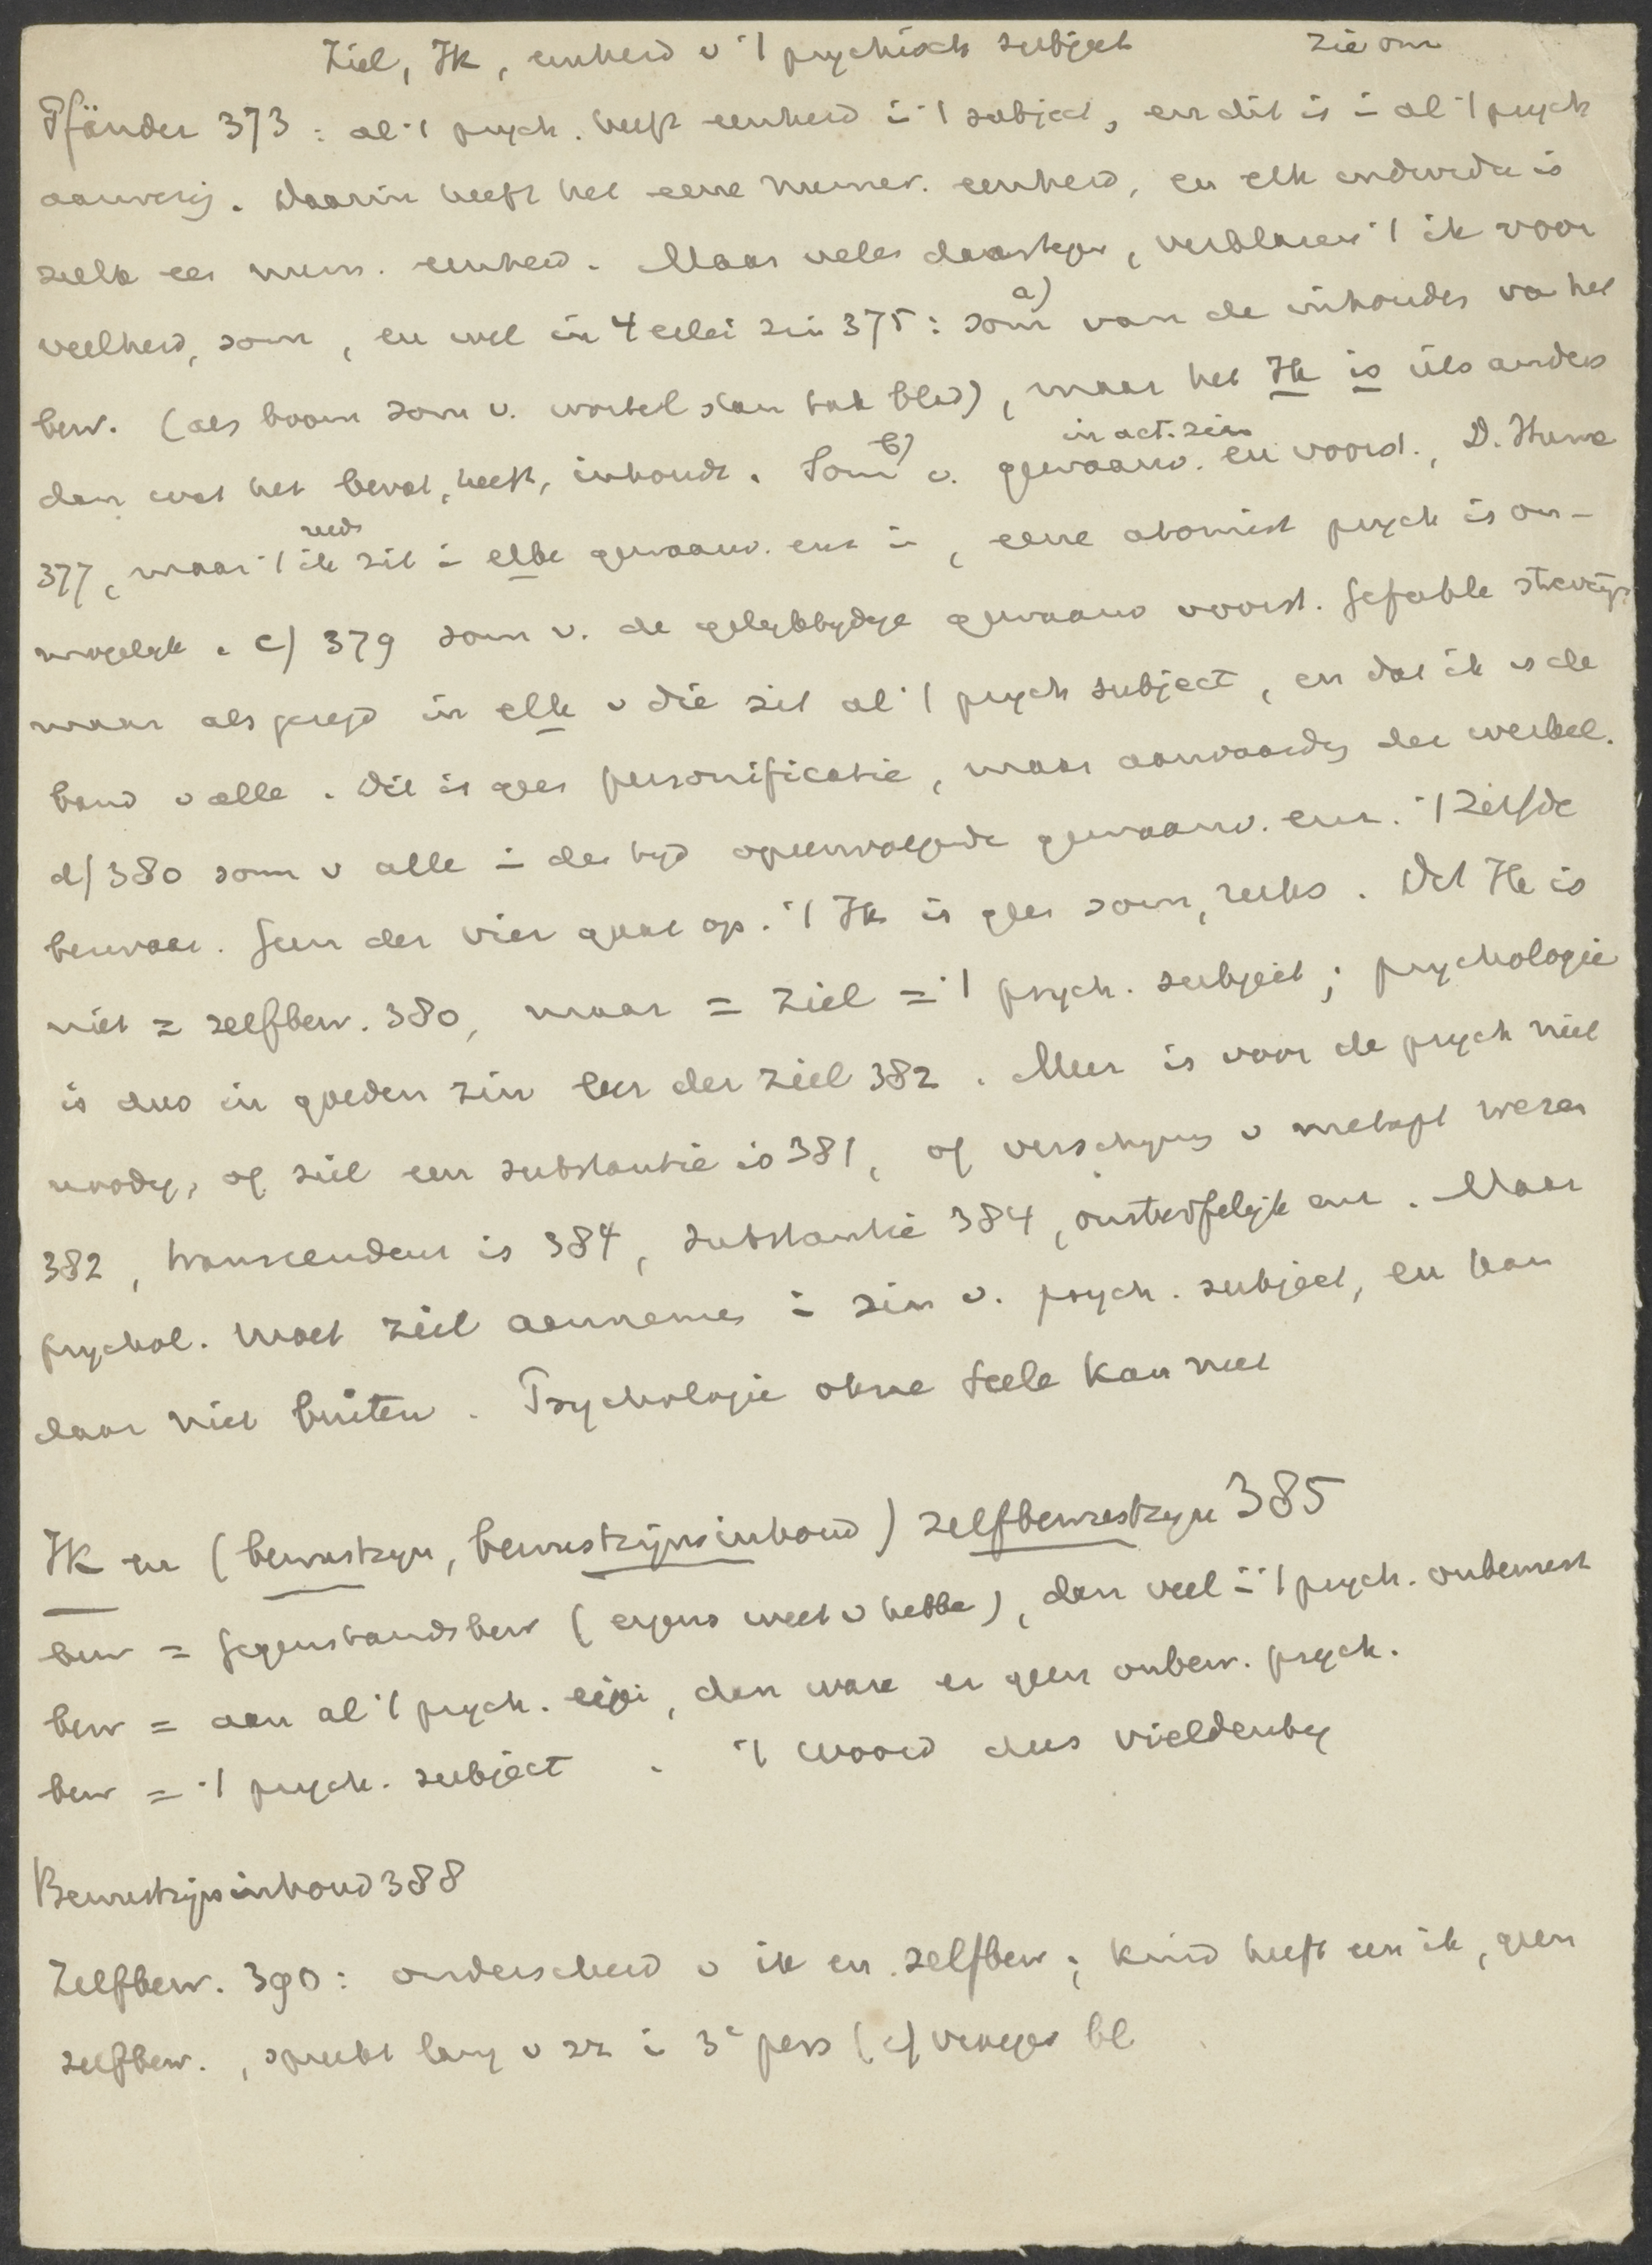 Ziel, Ik, eenheid v 't psychisch subject zie om
Pfänder 373 : al 't psych. heeft eenheid in 't subject, en dit is in al 't psych
aanwezig. Daarin heeft het eene numer. eenheid, en elk individu is
zelk een num. eenheid. Maar velen daartegen, verklaren 't ik voor
veelheid, som, en wel in 4 erlei zin 375 : som a) van de inhouden va het
bew. (als boom som v. wortel stam tak blad), maar het Ik is iets anders
dan wat het bevat, heeft, inhoudt. Som b) v. gewaarw. in act. zin en voorst., D. Hume
377, maar 't ik zit reeds in elke gewaarw. enz in, eene atomist psych is on-
mogelijk. c) 379 som v. de gelijktijdige gewaarw voorst. Gefühle strevingen
maar als gezegd in elk v die zit al 't psych subject, en dat ik is de
band v alle. Dit is geen personificatie, maar aanvaarding der werkel.
d) 380 som v alle in den tijd opeenvolgende gewaarw. enz. 't Zelfde
bezwaar. Geen der vier gaat op. 't Ik is geen som, reeks. Dit Ik is
niet = zelfbew. 380, maar = ziel = 't psych. subject ; psychologie
is dus in goeden zin leer der ziel 382. Meer is voor de psych niet
noodig, of ziel een substantie is 381, of verschijning v metaph wezen
382, transcendent is 384, substantie 384, onsterfelijk enz. Maar
psychol. moet ziel aannemen in zin v. psych. subject, en kan
daar niet buiten. Psychologie ohne Seele kan niet
Ik en (bewustzijn, bewustzijnsinhoud) zelfbewustzijn 385
bew = Gegenstandsbew (ergens weet v hebben), dan veel in 't psych. onbewust
bew = aan al 't psych. eigen, dan ware er geen onbew. psych.
bew = 't psych. subject. 't Woord dus vieldeutig
Bewustzijnsinhoud 388
Zelfbew. 390 : onderscheid v ik en zelfbew ; kind heeft een ik, geen
zelfbew., spreekt lang v zz in 3e pers (cf vroeger bl